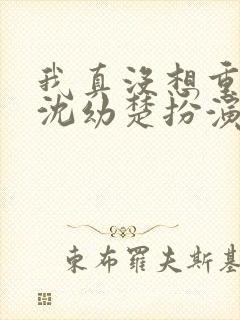 我真没想重
沈幼楚扮演
東布羅夫斯基